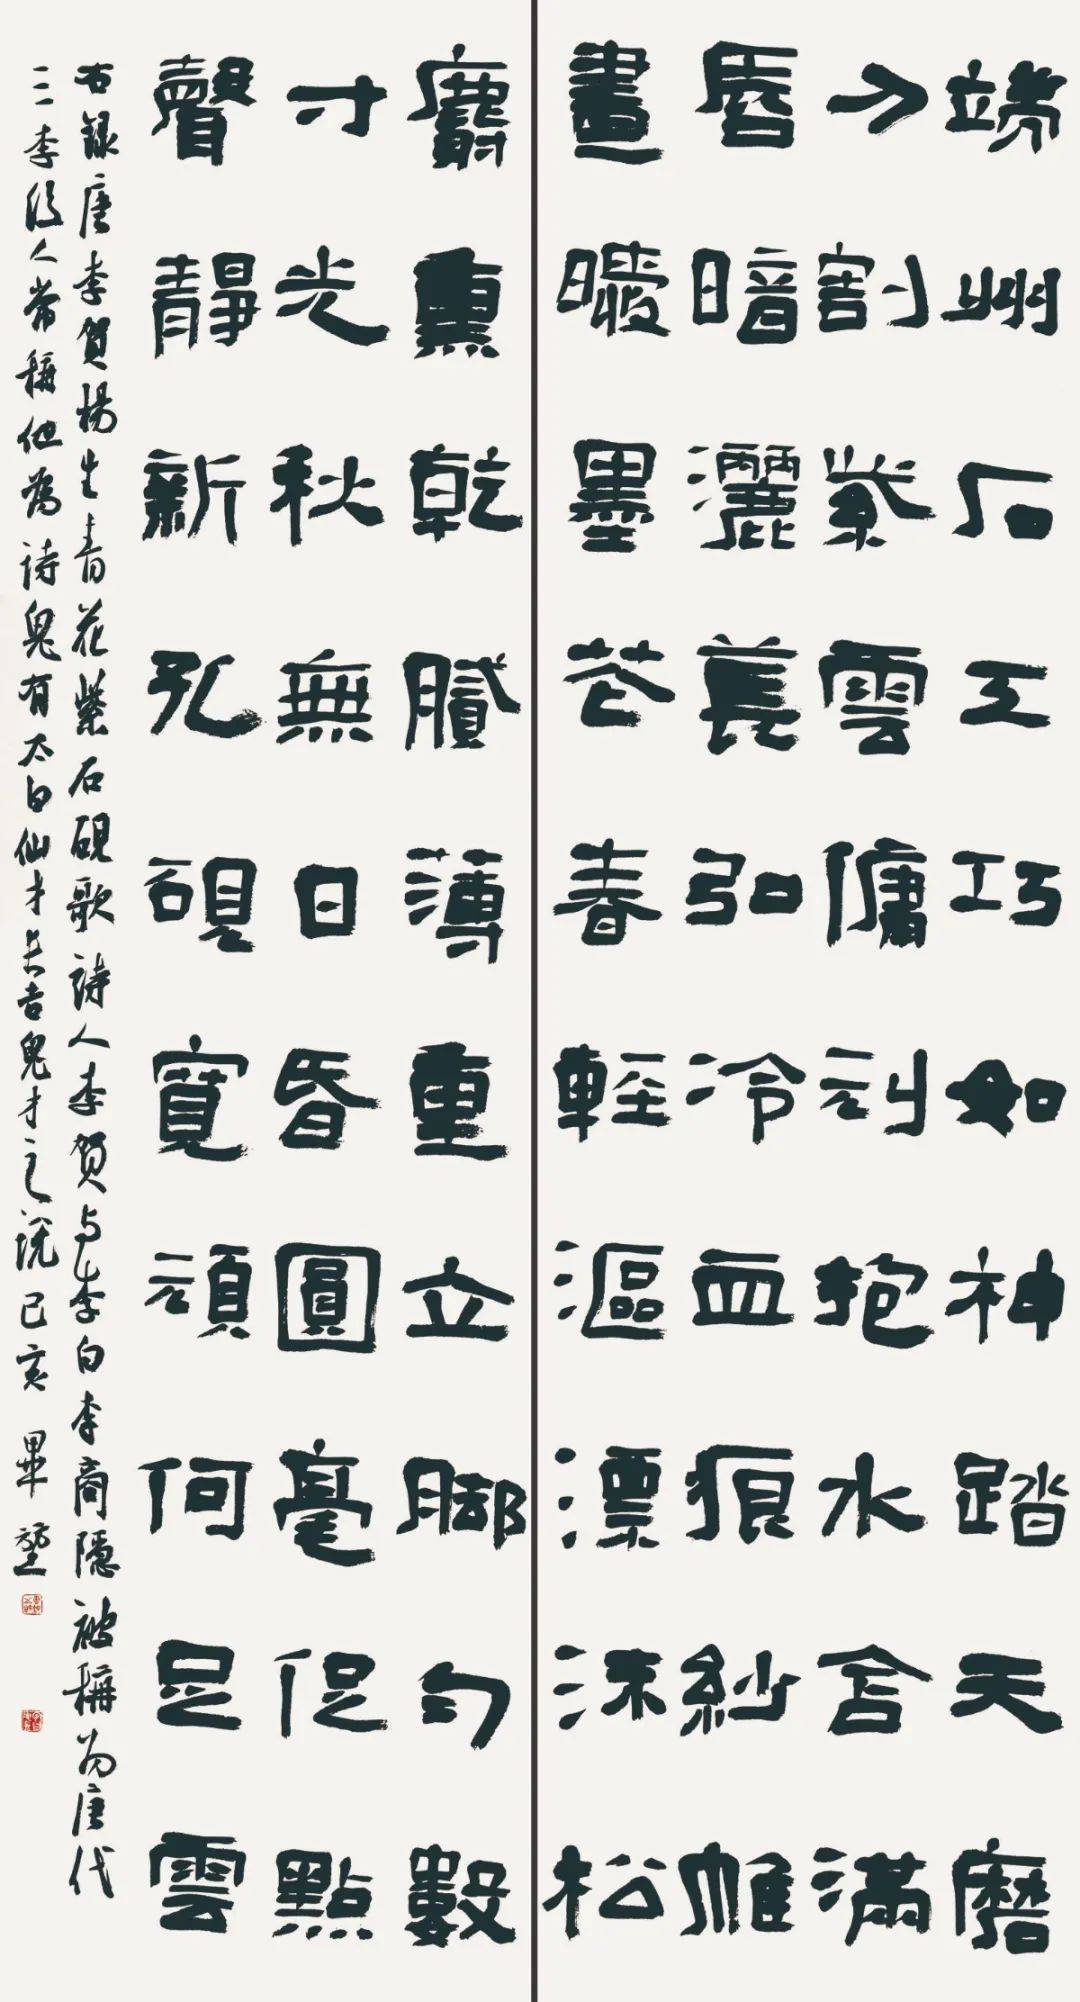 端州石工巧如神踏天磨
刀割紫雲傭刓抱水含滿
唇暗灑萇弘冷血痕紗帷
晝暖墨花春輕漚漂沫松
麝熏乾膩薄重立脚勻數
寸光秋無日昏圓毫促點
聲靜新孔硯寬頑何足雲
右録唐李賀楊生青花紫石硯歌詩人李賀与李白李商隱被稱为唐代
三李後人常稱他為詩鬼有太白仙才長吉鬼才之說己亥畢